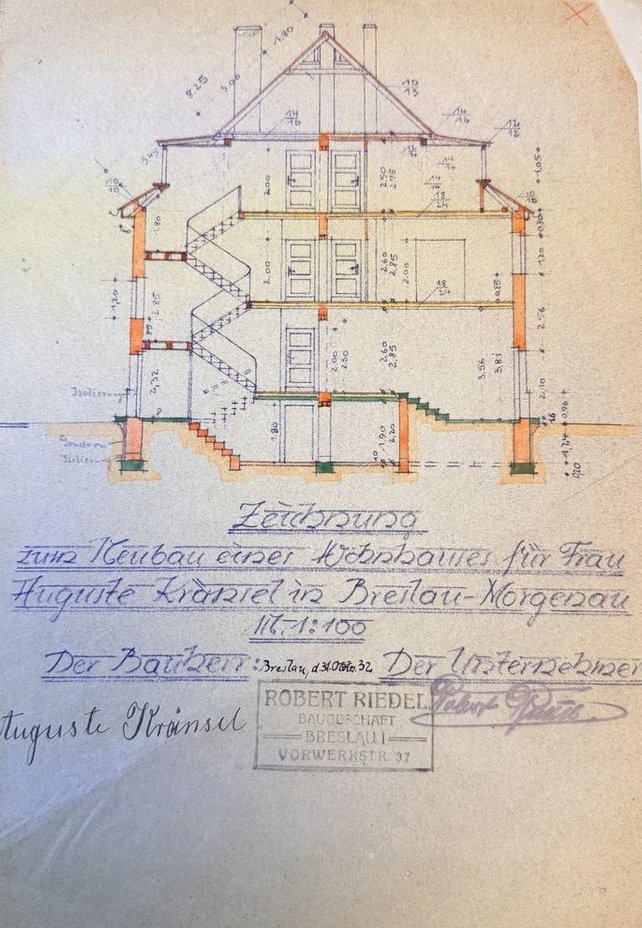 1.80
8.25
3.06
10
14
16
14
16
12
12
3.45
2.00
2.50
2.75
1.05
18
24
1.80
0.80
2.00
2.60
2.85
2.00
1.20
1.20
2.85
18
0.85
2.56
85
2.00
2.30
2.60
2.85
3.56
3.81
2.32
2.10
Isolierung
0.96
16
1.80
1.90
2.20
1.24
Goudron
Isolierung
10
0.20
Zeichnung
zum Neubau eines Wohnhauses für Frau
Auguste Kränsel in Breslau-Morgenau
M. 1:100
Der Bauherr: Breslau, d. 31. 32. Der Unternehmer
Auguste Kränsel
ROBERT RIEDEL
BAUGESCHÄFT
BRESLAU I
VORWERKSTR. 37